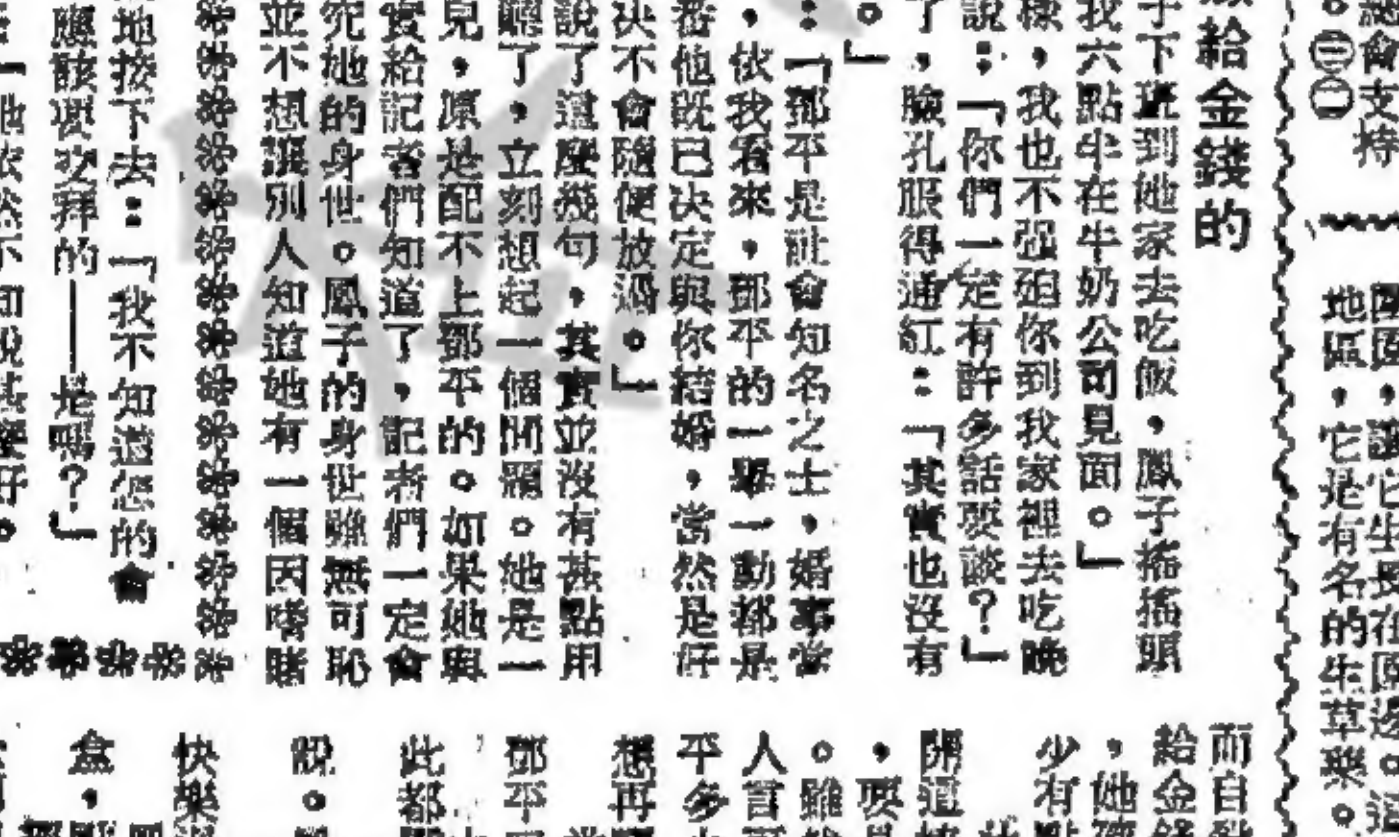 總會支持
。㊂㊁
地區，它是有名的生草藥。
給金錢的
子下班到她家去吃飯，鳳子搖搖頭
我六點半在牛奶公司見面。」
樣，我也不强迫你到我家裡去吃晚
說：「你們一定有許多話要談？」
了，臉孔脹得通紅：「其實也沒有
。」
：「鄧平是社會知名之士，婚事當
，依我看來，鄧平的一舉一動都是
番他既已决定與你結婚，當然是好
决不會隨便放過。」
說了這麼幾句，其實並沒有甚點用
聽了，立刻想起一個問題。她是一
見，原是配不上鄧平的。如果她與
實給記者們知道了，記者們一定會
究她的身世。鳳子的身世雖無可恥
並不想讓別人知道她有一個因嗜賭
地接下去：「我不知道怎的會
應該要交拜的——是嗎？」
她依然不知說甚麼好。
而自
給金錢
，她
少有點
開
，要
。雖
人言
平多
想再
鄧平
此都
說。
快樂
盒，